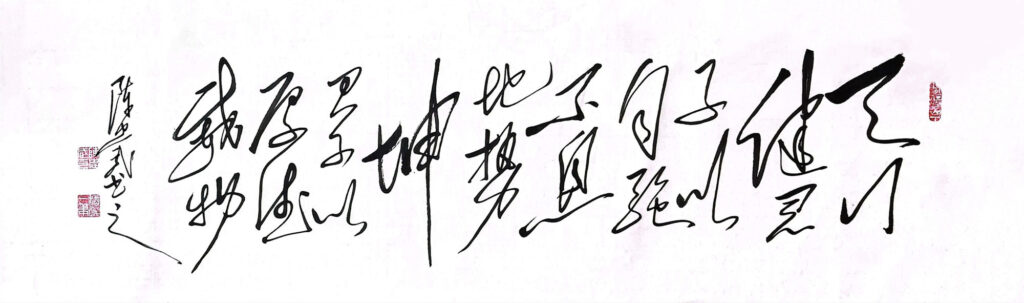 天行
健君
子以
自强
不息
地势
坤
君子以
厚德
载物
陈武书之